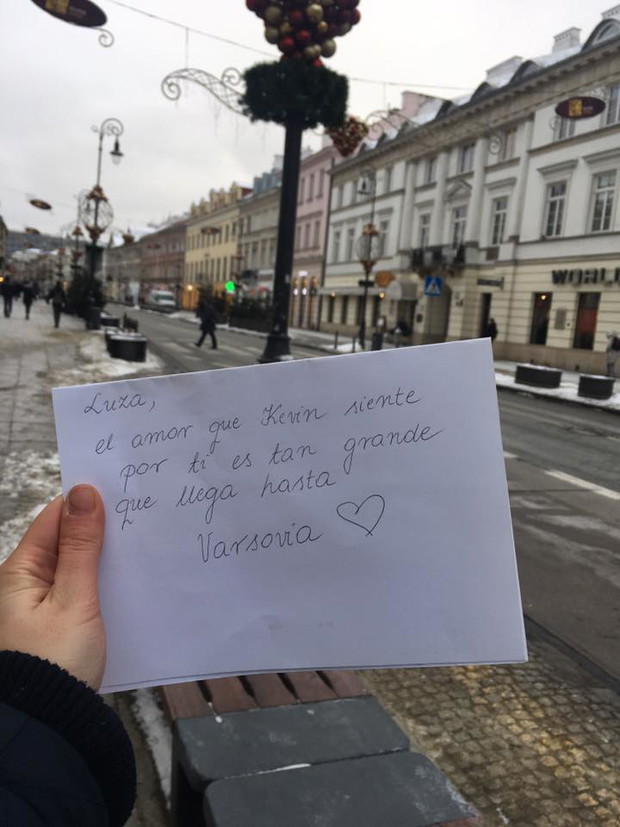 Luza,
el amor que Kevin siente
por ti es tan grande
que llega hasta
Varsovia ♡
WORLD